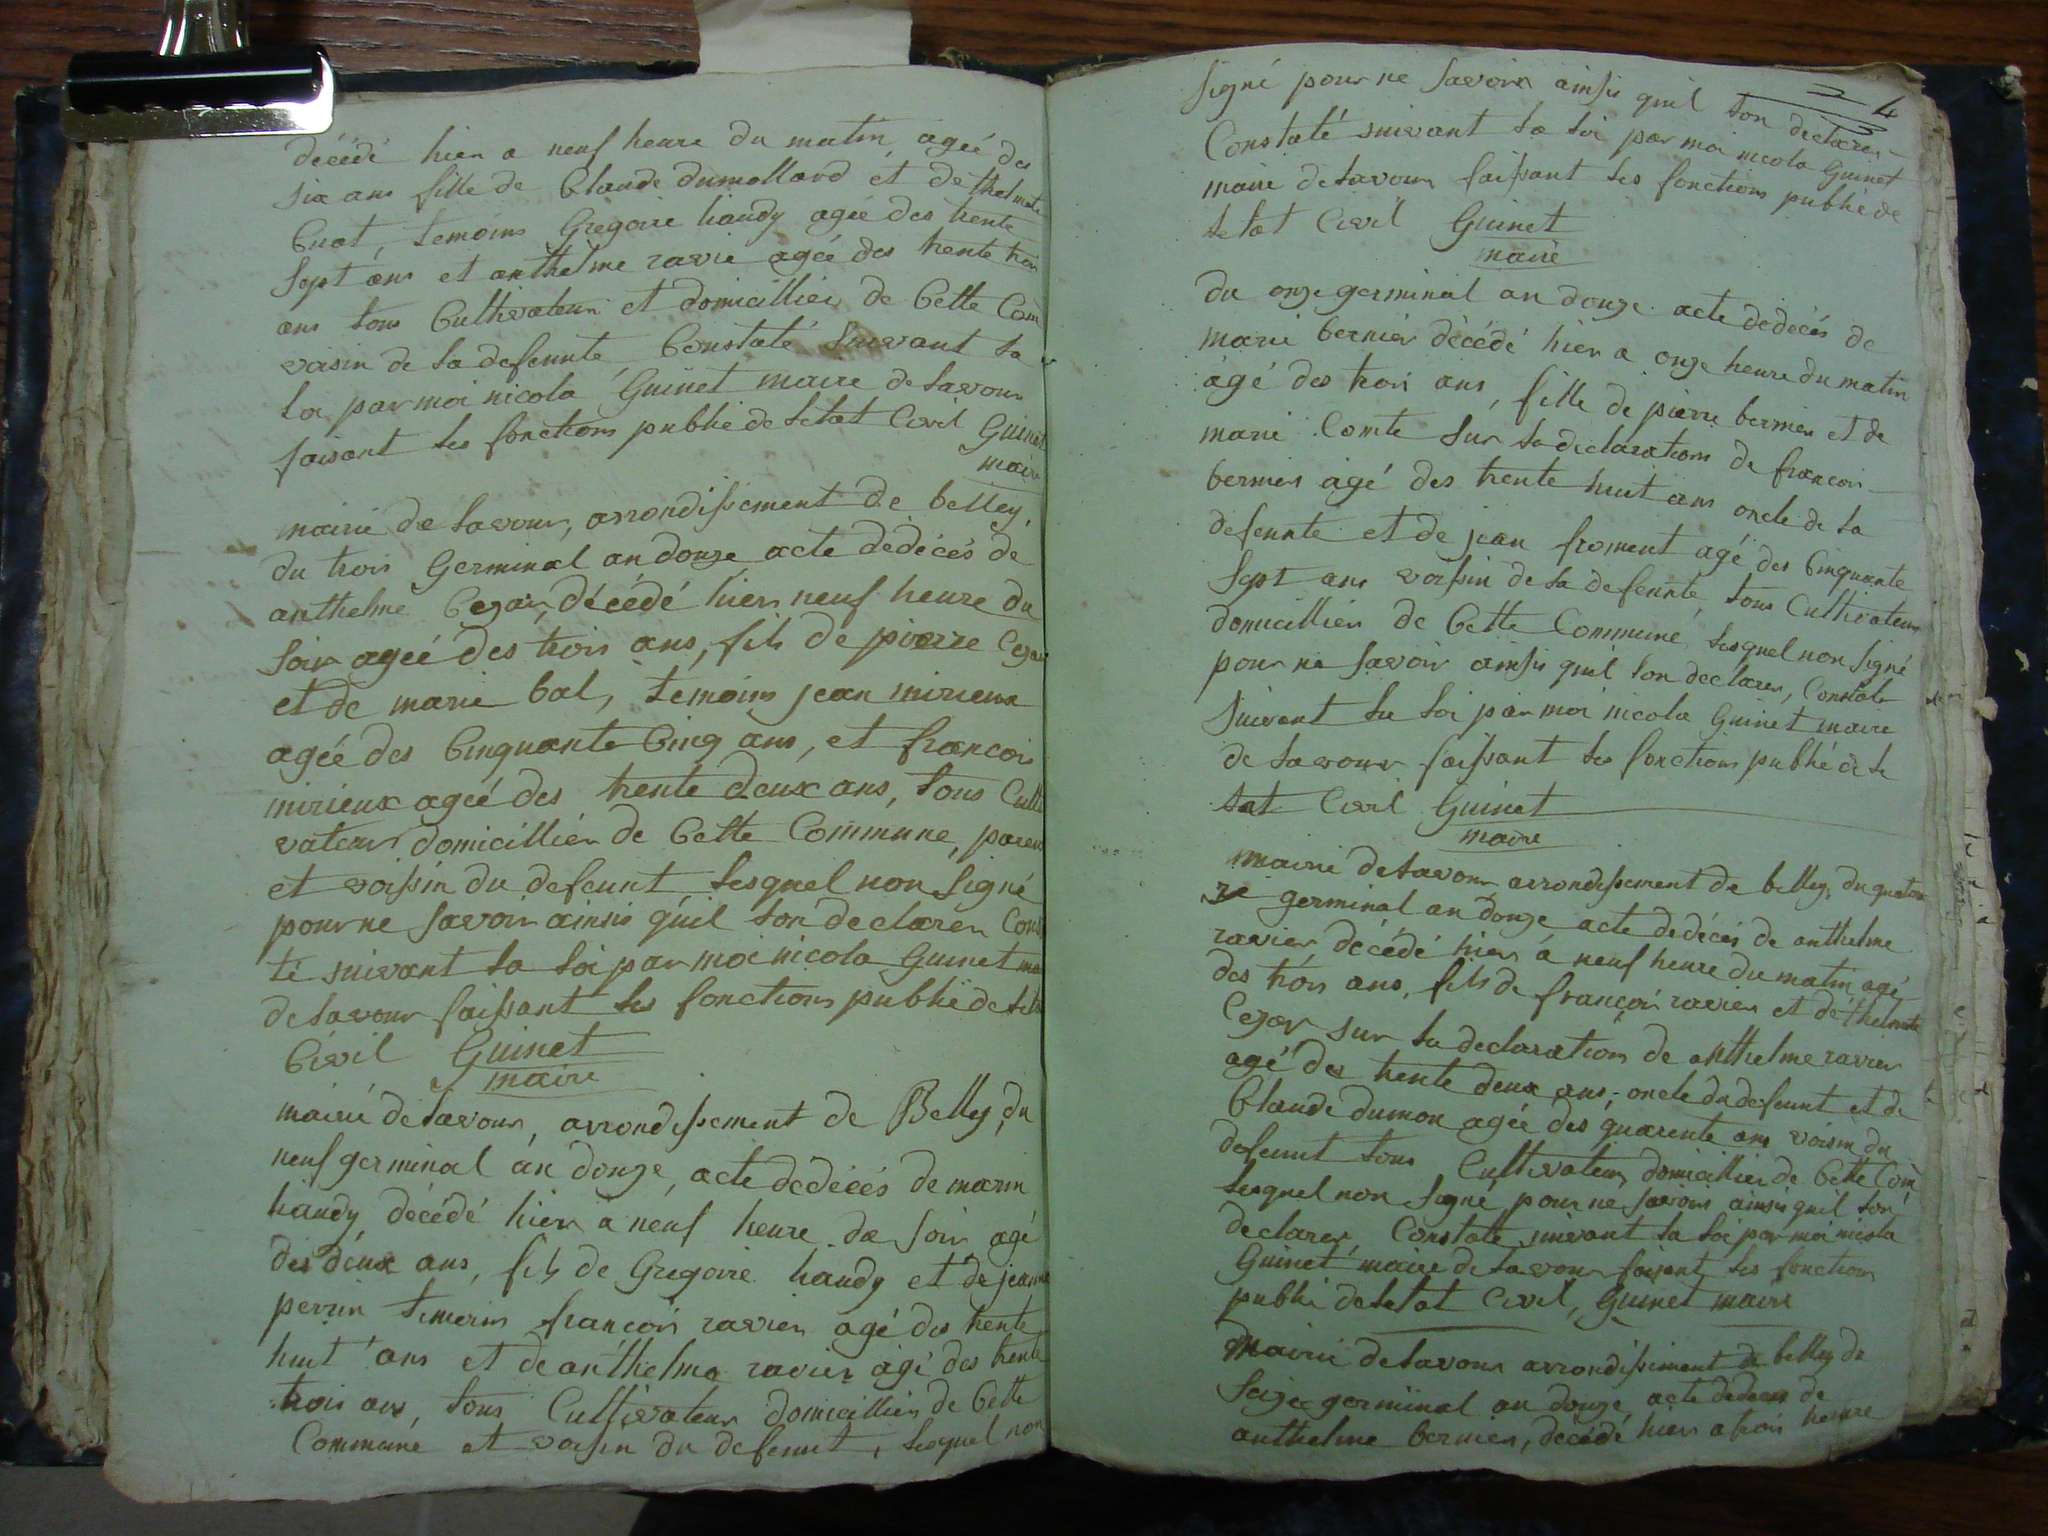 décédé hier a neuf heure du matin agée des
six ans fille de Claude dumollard et de thelmete
Cuat, temoins Gregoire handy agée des trente
sept ans et anthelme ravie agée des trente troi
ans tous Cultivateur et domicillier de Cette Com
voisin de la defeunte Constaté Suivant la
loi par moi nicola Guinet maire de lavour
faisant les fonctions publié de letat Civil Guinet
maire
mairie de lavour, arrondissement de belley,
du trois Germinal an douze acte dedécés de
anthelme Cezar, décédé hier neuf heure du
soir agée des trois ans, fils de pierre Cezar
et de marie bal, temoins jean mirieux
agée des Cinquante Cinq ans, et francois
mirieux agée des trente deux ans, tous Culti
vateur domicillier de Cette Commune, paren
et voissin du defeunt lesquel non signé
pour ne savoir ainsis quil lon declarer Cons
té suivant la loi par moi nicola Guinet ma
de lavour faissant les fonctions publié de leta
Civil Guinet
maire
mairie de lavour, arrondissement de Belley, du
neuf germinal an douze, acte dedécés de marin
handy décédé hier a neuf heure de soir agé
des deux ans, fils de Gregoire handy et de jeanne
perrin temoin francois ravier agé des trente
huit ans et de anthelme ravier agé des trente
trois ans, tous Cultivateur domicillier de Cette
Commune et voisin du defeunt, lesquel non
24
signé pour ne savoir ainsis quil lon declarer
Constaté suivant la loi par moi nicola Guinet
maire de lavour faissant les fonctions publié de
letat Civil Guinet
maire
du onze germinal an douze acte dedécés de
marie bernier décédé hier a onze heure du matin
agé des trois ans, fille de pierre bernier et de
marie Comte sur la declarations de francois
bernier agé des trente huit ans oncle de la
defeunte et de jean froment agé des Cinquante
Sept ans voissin de la defeunte, tous Cultivateur
domicillier de Cette Commune, lesquel non signé
pour ne savoir ainsis quil lon declarer, Constate
suivant la loi par moi nicola Guinet maire
de lavour faissant les fonctions publié de le
tat Civil Guinet
maire
mairie de lavour arrondissement de belley, du quator
ze germinal an douze acte dedécés de anthelme
ravier décédé hier á neuf heure du matin agé
des trois ans, fils de francois ravier et de thelmete
Cezar sur la declarations de anthelme ravier
agé des trente deux ans, oncle du defeunt et de
Claude dumon agée des quarente ans voisin du
defeunt tous Cultivateur domicillier de Cette Com
lesquel non signé pour ne savoir ainsis quil lon
declarer, Constate suivant la loi par moi nicola
Guinet maire de lavour faisant les fonctions
publié de letat Civil, Guinet maire
Mairie de lavour arrondissiment de belley du
Seize germinal an douze acte dedeces de
anthelme bernier, décédé hier a trois heure